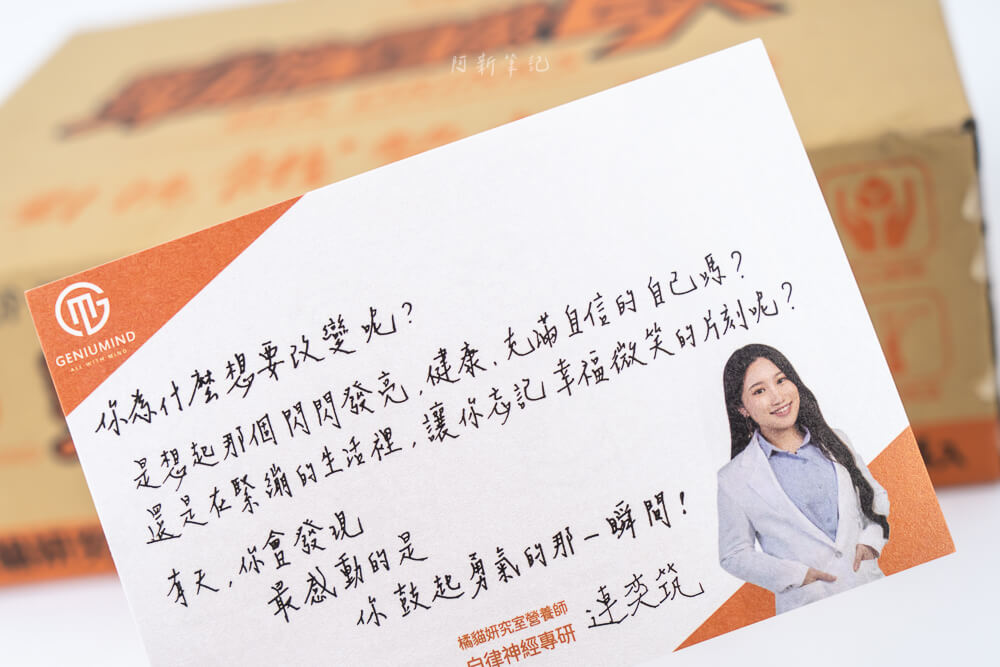 阿新筆記
GENIUMIND
ALL WITH MIND
你為什麼想要改變呢?
是想起那個閃閃發亮,健康,充滿自信的自己嗎?
還是在緊繃的生活裡,讓你忘記幸福微笑的片刻呢?
有天,你會發現
最感動的是
你鼓起勇氣的那一瞬間!
橘貓妍究室營養師
自律神經專研
連奕筑